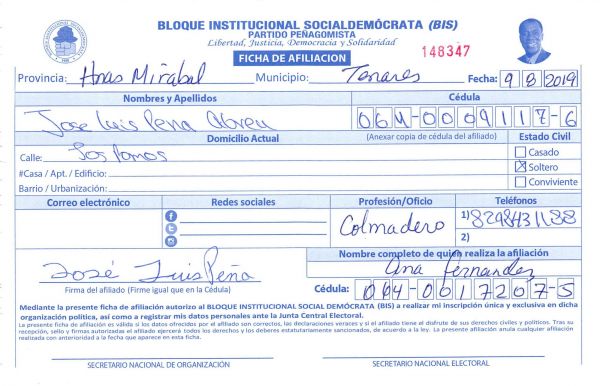 BLOQUE INSTITUCIONAL SOCIALDEMÓCRATA (BIS)
PARTIDO PEÑAGOMISTA
Libertad, Justicia, Democracia y Solidaridad
FICHA DE AFILIACION
148347
Provincia: Hnas Mirabal Municipio: Tenares Fecha: 9 8 2019
Nombres y Apellidos Cédula
Jose Luis Pena Abreu 064-0009117-6
Domicilio Actual (Anexar copia de cédula del afiliado) Estado Civil
Calle: Los Pomos Casado
#Casa / Apt. / Edificio: Soltero
Barrio / Urbanización: Conviviente
Correo electrónico Redes sociales Profesión/Oficio Teléfonos
Colmadero 1)
2)
José Luis Peña
Firma del afiliado (Firme igual que en la Cédula)
Nombre completo de quien realiza la afiliación
Ana Fernandez
Cédula: 064-0017207-5
Mediante la presente ficha de afiliación autorizo al BLOQUE INSTITUCIONAL SOCIAL DEMÓCRATA (BIS) a realizar mi inscripción única y exclusiva en dicha
organización política, así como a registrar mis datos personales ante la Junta Central Electoral.
La presente ficha de afiliación es válida si los datos ofrecidos por el afiliado son correctos, las declaraciones veraces y si el afiliado tiene el disfrute de sus derechos civiles y políticos. Tras su
recepción, sello y firmas autorizadas el afiliado ejercerá todos los derechos y los deberes estatutariamente sancionados, de acuerdo a la ley. La presente afiliación anula cualquier afiliación
realizada con anterioridad a la fecha que aparece en esta ficha.
SECRETARIO NACIONAL DE ORGANIZACIÓN SECRETARIO NACIONAL ELECTORAL